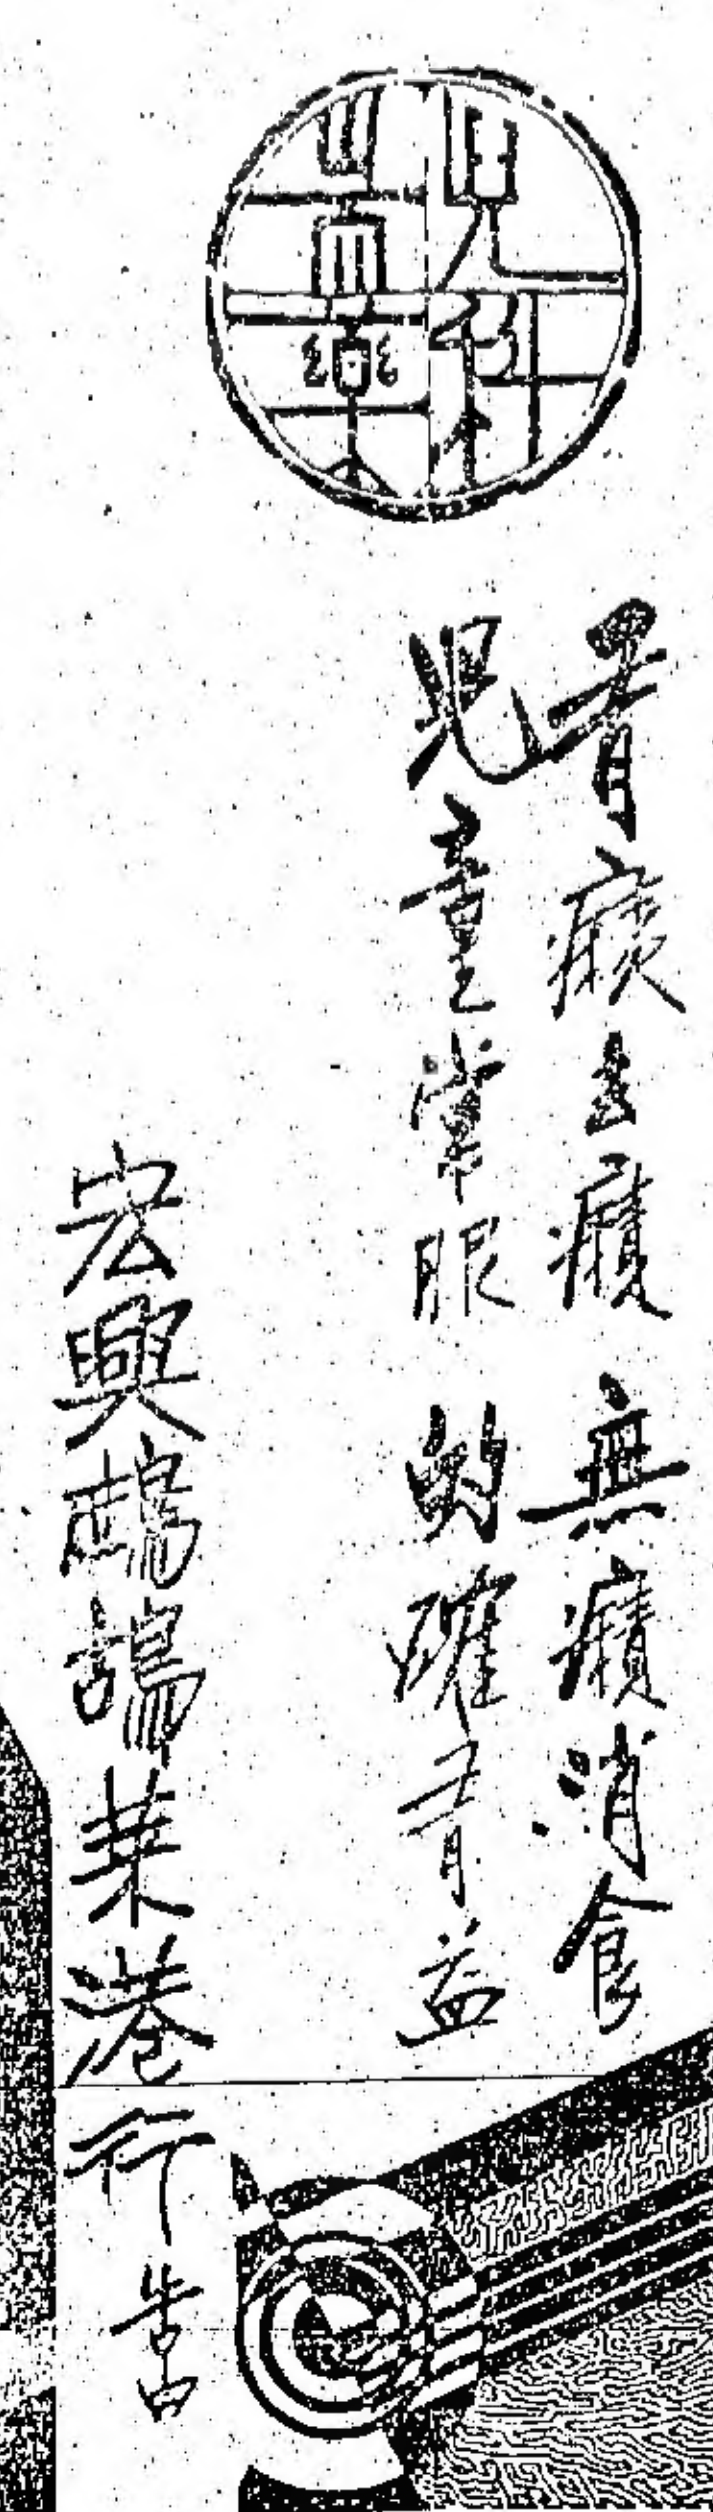 兒科
藥
有癪去癪 無癪消食
兒童常服 的確有益
宏興鷓鴣菜港行告